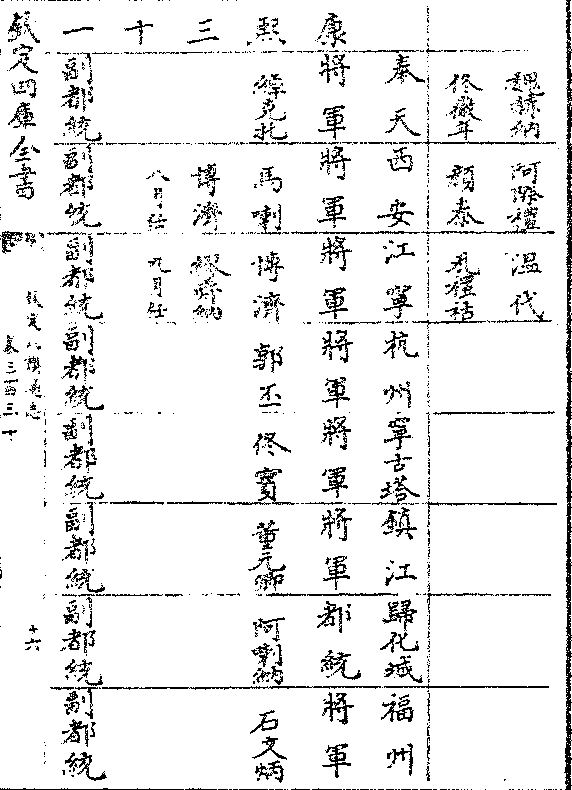 魏赫納 溫代
佟徹年 顏泰 瓦禮祜
奉天 西安 江寧 杭州 寧古塔 鎮江 歸化城 福州
康 將軍 將軍 將軍 將軍 將軍 將軍 都統 將軍
熙 綽克託 馬喇 博濟 郭丕 佟寶 董元卿 阿喇納 石文炳
三 博濟 繆舜納
十 八月任 九月任
一 副都統 副都統 副都統 副都統 副都統 副都統 副都統 副都統
欽定四庫全書
欽定八旗通志
卷三百三十
十六